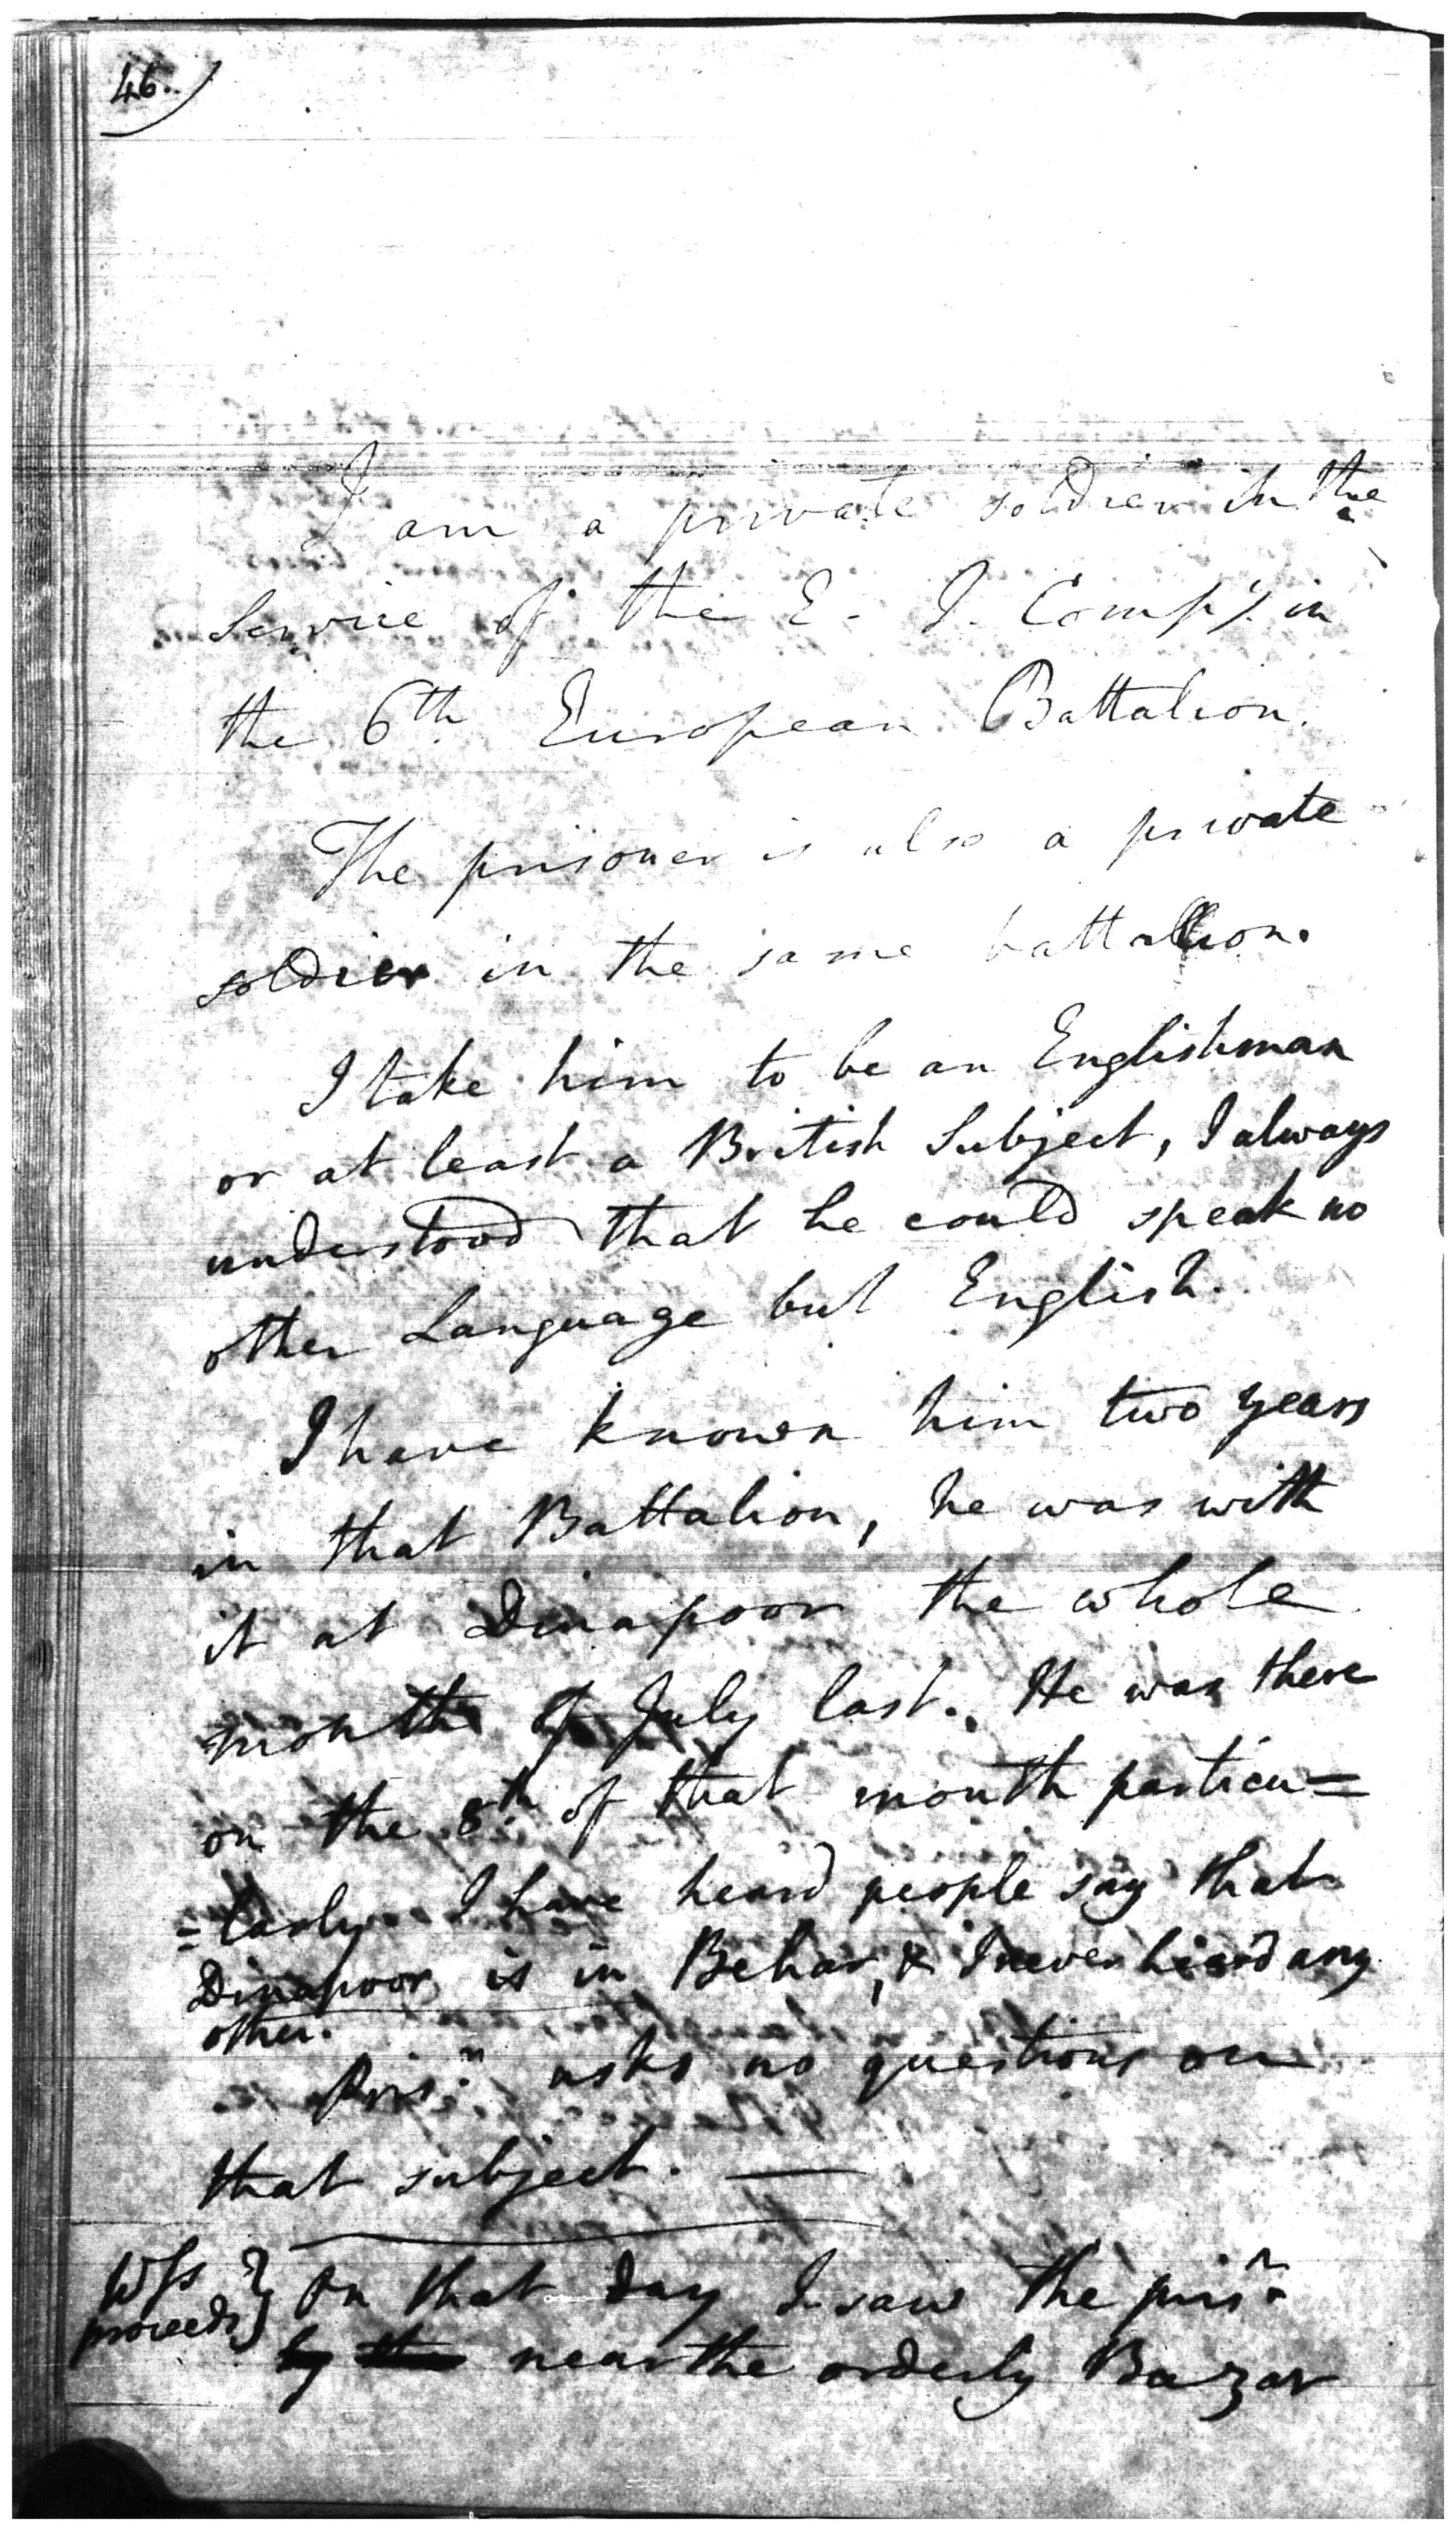 46.
I am a private soldier in the
Service of the E. I. Compy. in
the 6th European Battalion.
The prisoner is also a private
soldier in the same battalion.
I take him to be an Englishman
or at least a British Subject, I always
understood that he could speak no
other Language but English.
I have known him two years
in that Battalion, he was with
it at Dinapoor the whole
month of July last. He was there
on the 8th of that month particu=
=larly I have heard people say that
Dinapoor is in Behar, & I never heard any
other.
Prisr. asks no questions on
that subject. —
Wss
proceeds} On that day I saw the prisr.
by the near the orderly Bazar